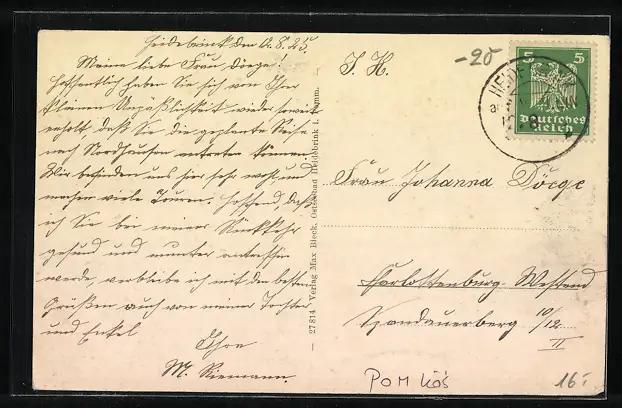 Heidebrink den 12.8.25.
Meine liebe Frau Dörge!
Hoffentlich haben Sie sich von Ihrer
kleinen Unpäßlichkeit wieder soweit
erholt, daß Sie die geplante Reise
nach Nordhausen antreten können.
Wir befinden uns hier sehr wohl, und
machen viele Touren. Hoffend, daß
ich Sie bei meiner Rückkehr
gesund und munter antreffen
werde, verbleibe ich mit den besten
Grüßen auch von meiner Tochter
und Enkel
Ihre
M. Riemann.
— 27814 Verlag Max Bleck, Ostseebad Heidebrink i. Pomm. —
-20
I. H.
5 5
Deutsches
Reich
HEIDE
Frau Johanna Dörge
Charlottenburg-Westend
Spandauerberg 10/12
II
POM
16:-